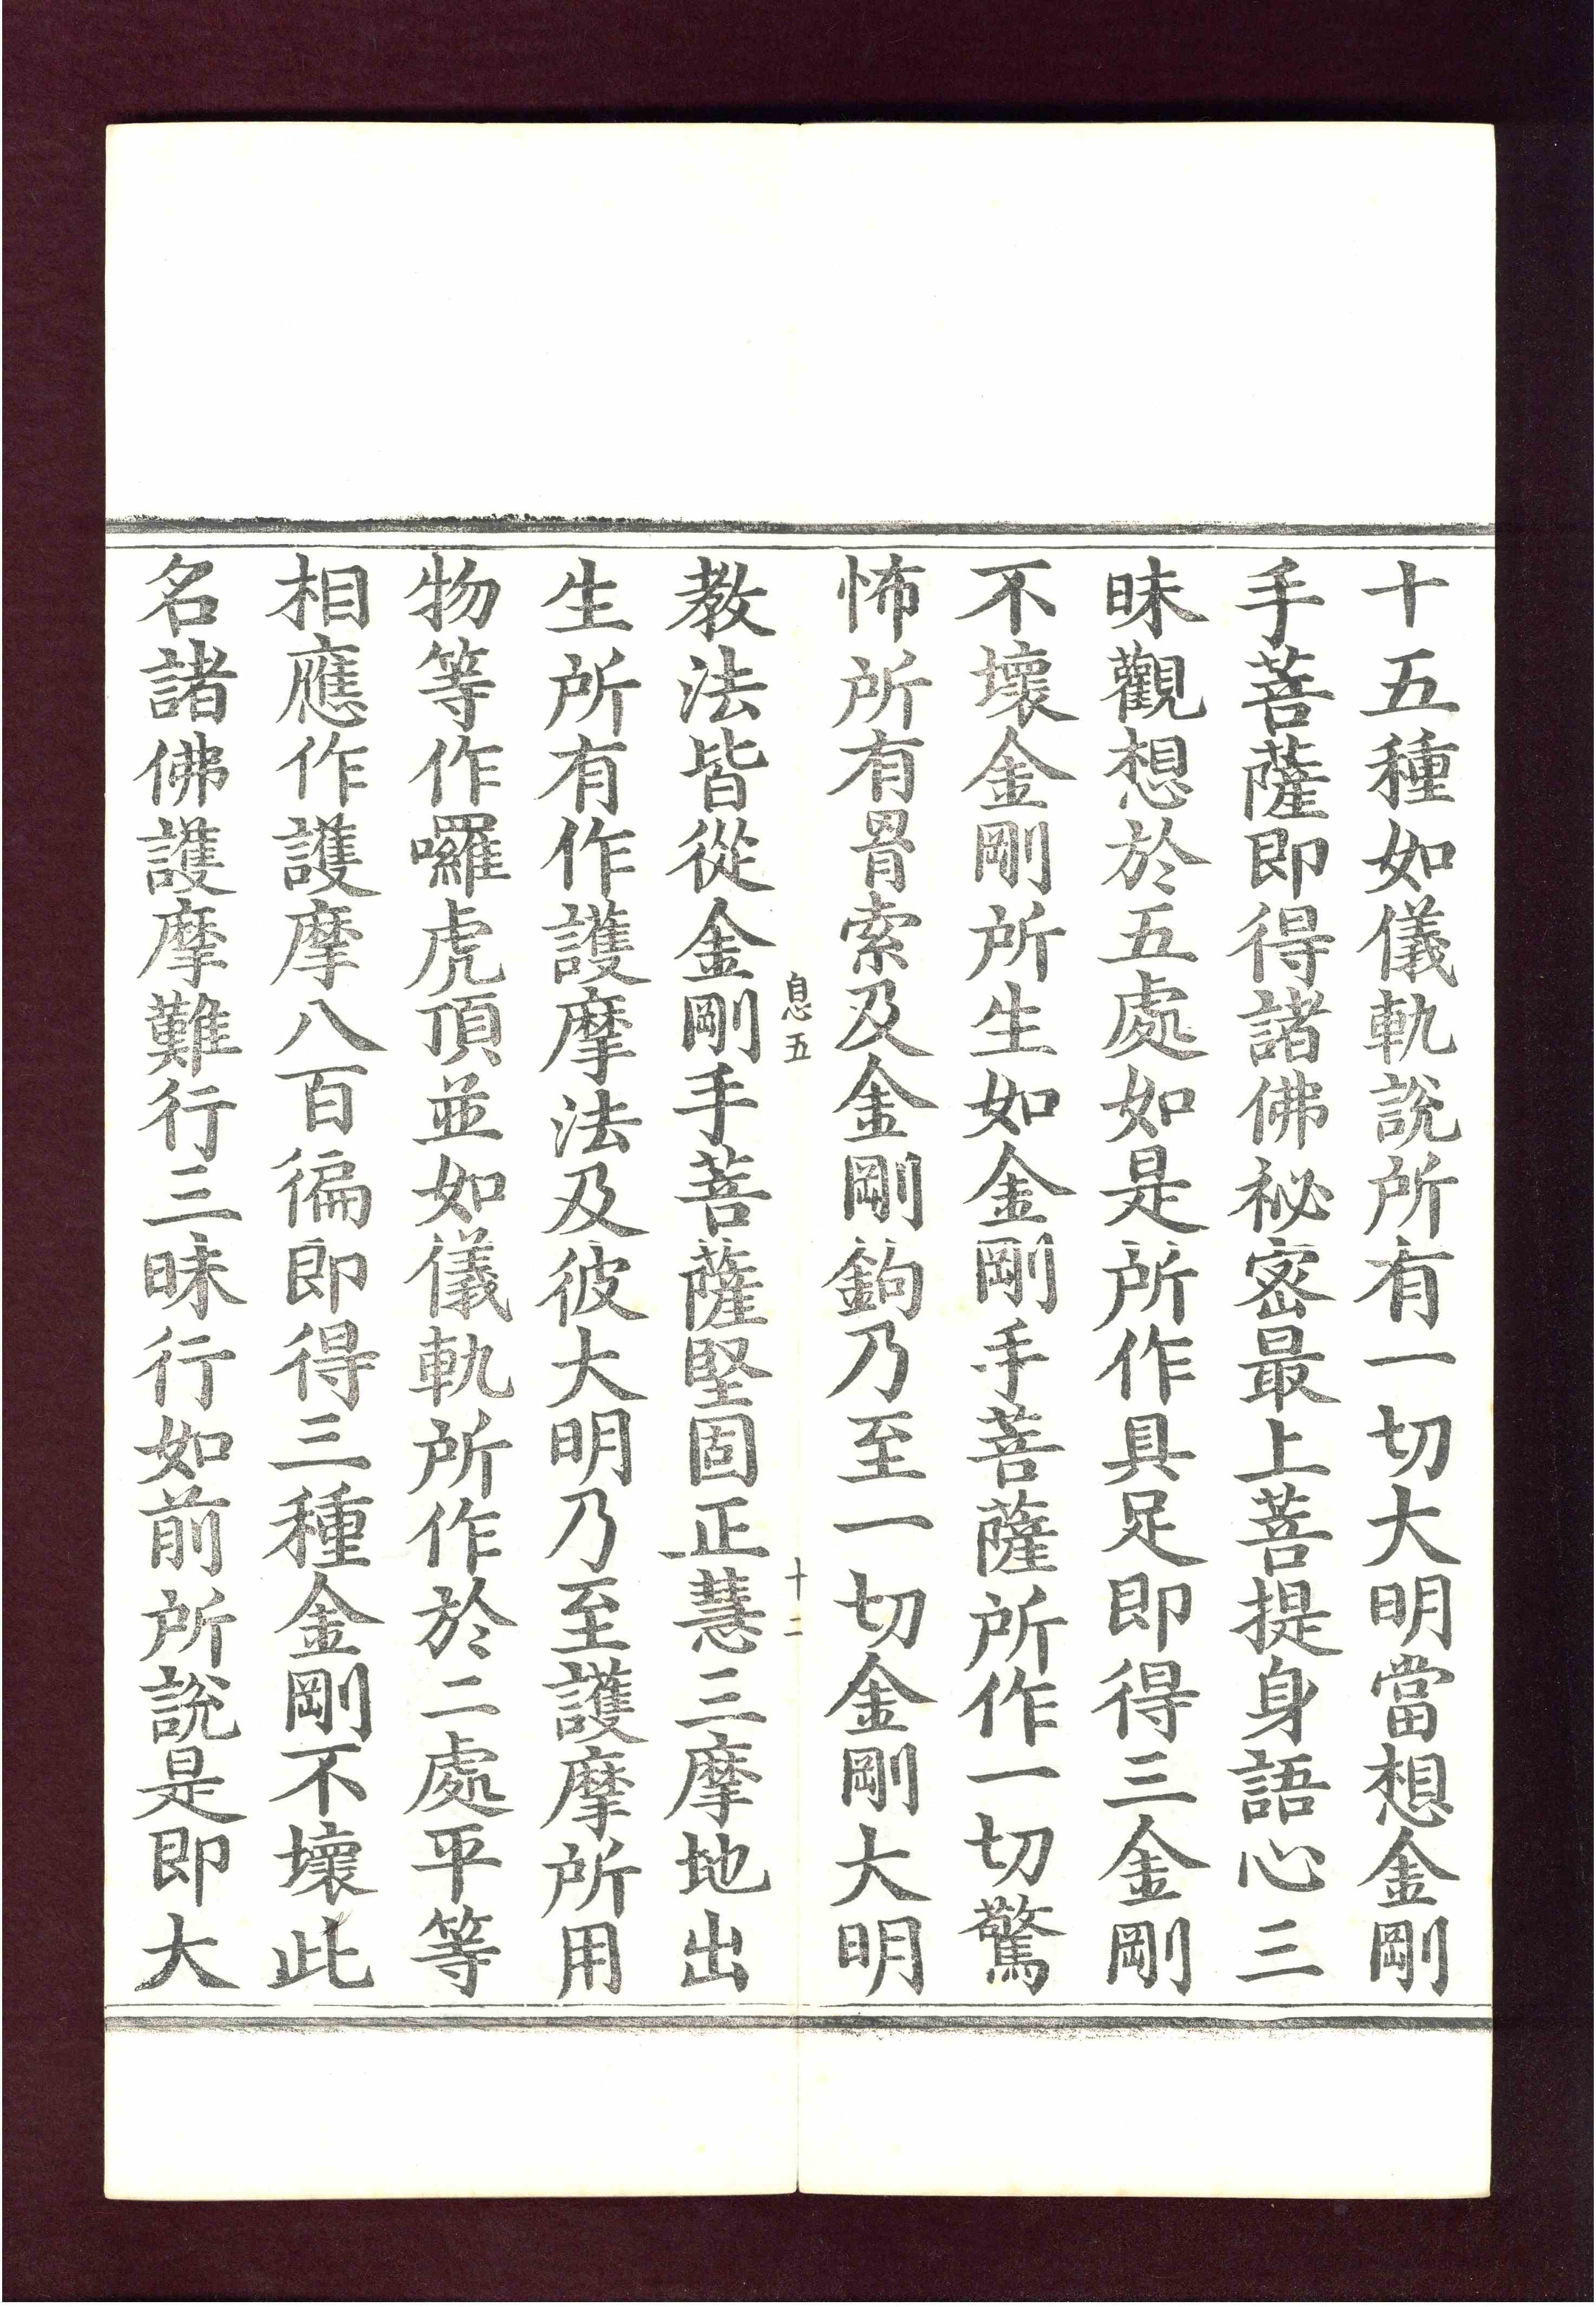 十五種如儀軌說所有一切大明當想金剛
手菩薩即得諸佛祕密最上菩提身語心三
昧觀想於五處如是所作具足即得三金剛
不壞金剛所生如金剛手菩薩所作一切驚
怖所有罥索及金剛鉤乃至一切金剛大明
息五
十二
教法皆從金剛手菩薩堅固正慧三摩地出
生所有作護摩法及彼大明乃至護摩所用
物等作囉虎頂並如儀軌所作於二處平等
相應作護摩八百徧即得三種金剛不壞此
名諸佛護摩難行三昧行如前所說是即大